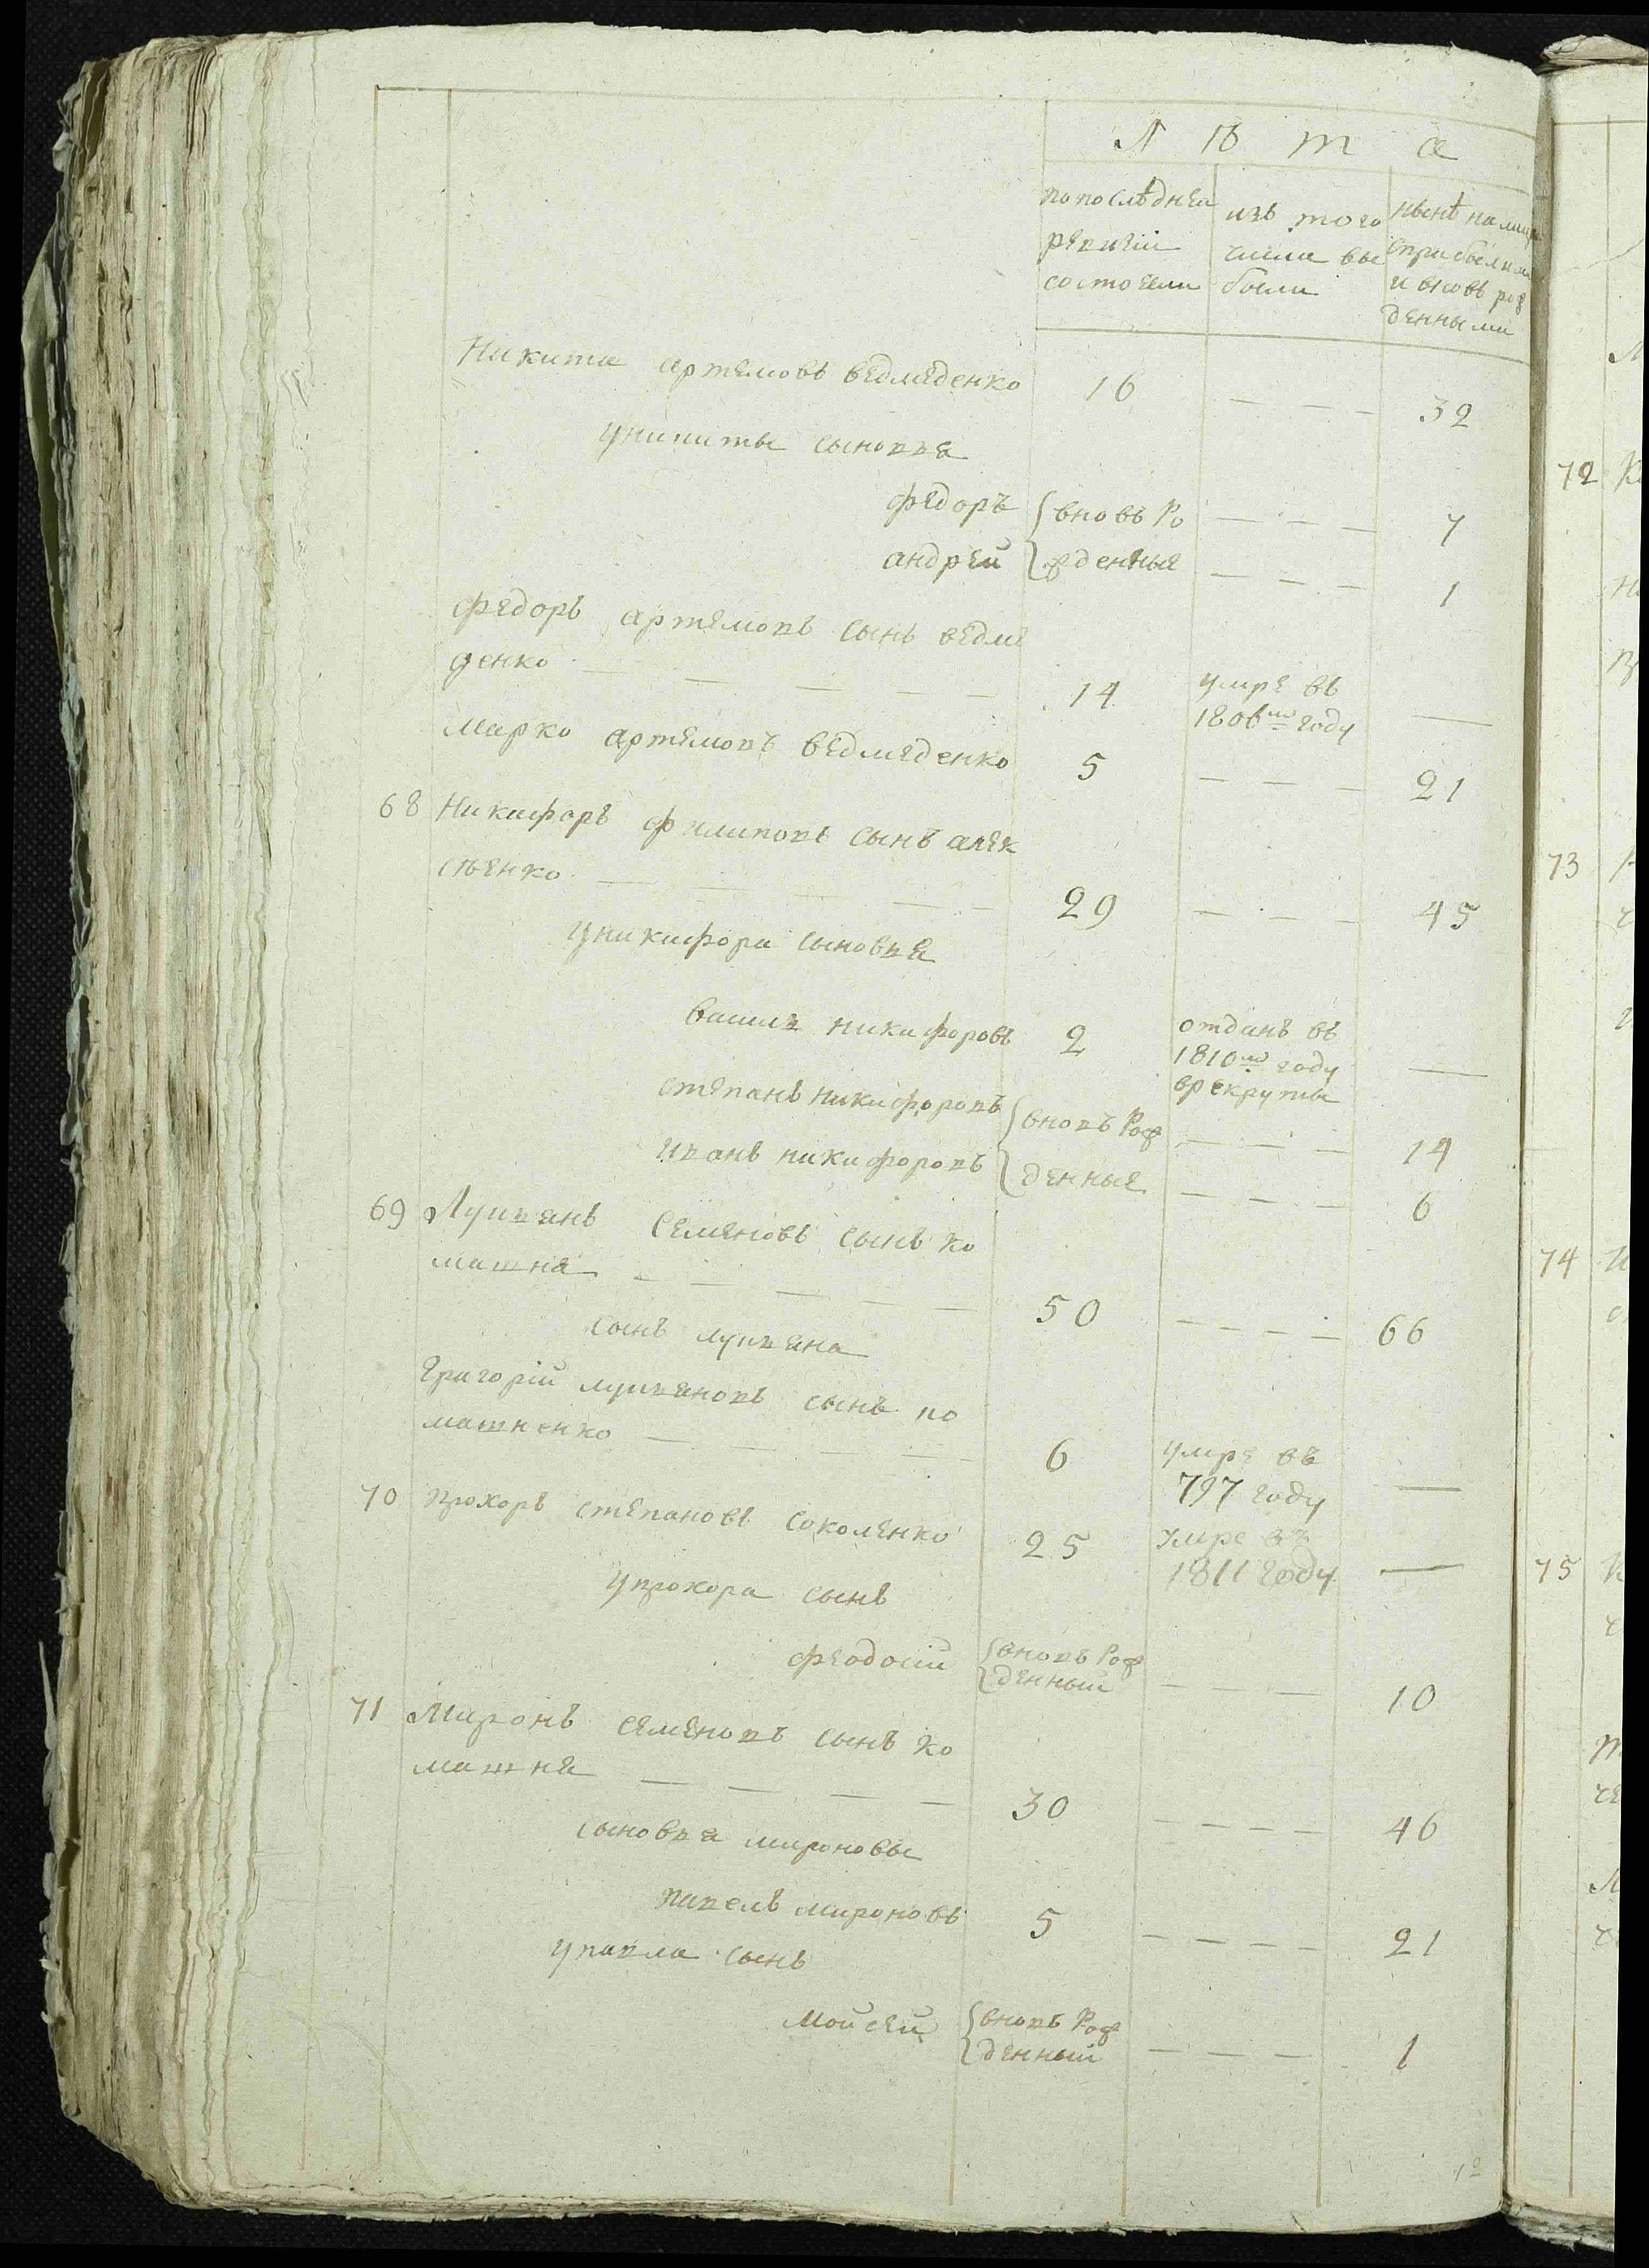 Л ѣ т а
по последнеи ревизіи состояли
изъ того числа выбыли
нынѣ на лицо съ прибылыми и вновь рождеными
Никита артемовъ ведмеденко 16 — — — 32
у никиты сыновья
федоръ вновь ро — — — 7
андрей жденныя — — — 1
федоръ артемовъ сынъ ведме
денко — — — — — 14 умре въ 1806мъ году —
марко артемовъ ведмеденко 5 — — — 21
68 Никифоръ филиповъ сынъ алек
сѣенко — — — — — 29 — — — 45
у никифора сыновья
василь никифоровъ 2 отданъ въ 1810мъ году в рекруты —
степанъ никифоровъ вновь рож — — — 14
иванъ никифоровъ денныя — — — 6
69 Лукьянъ семеновъ сынъ ко
матня — — — — — 50 — — — — 66
сынъ лукьяна
Григорій лукьяновъ сынъ ко
матненко — — — — — 6 умре въ 797 году —
70 прохоръ степановъ соколенко 25 умре въ 1811 году —
у прохора сынъ
феодосій вновь рожденный — — — 10
71 Миронъ семеновъ сынъ ко
матня — — — — 30 — — — — 46
сыновья мироновы
павелъ мироновъ 5 — — — — 21
у павла сынъ
Мойсей вновь рожденный — — — 1
72
73
74
75